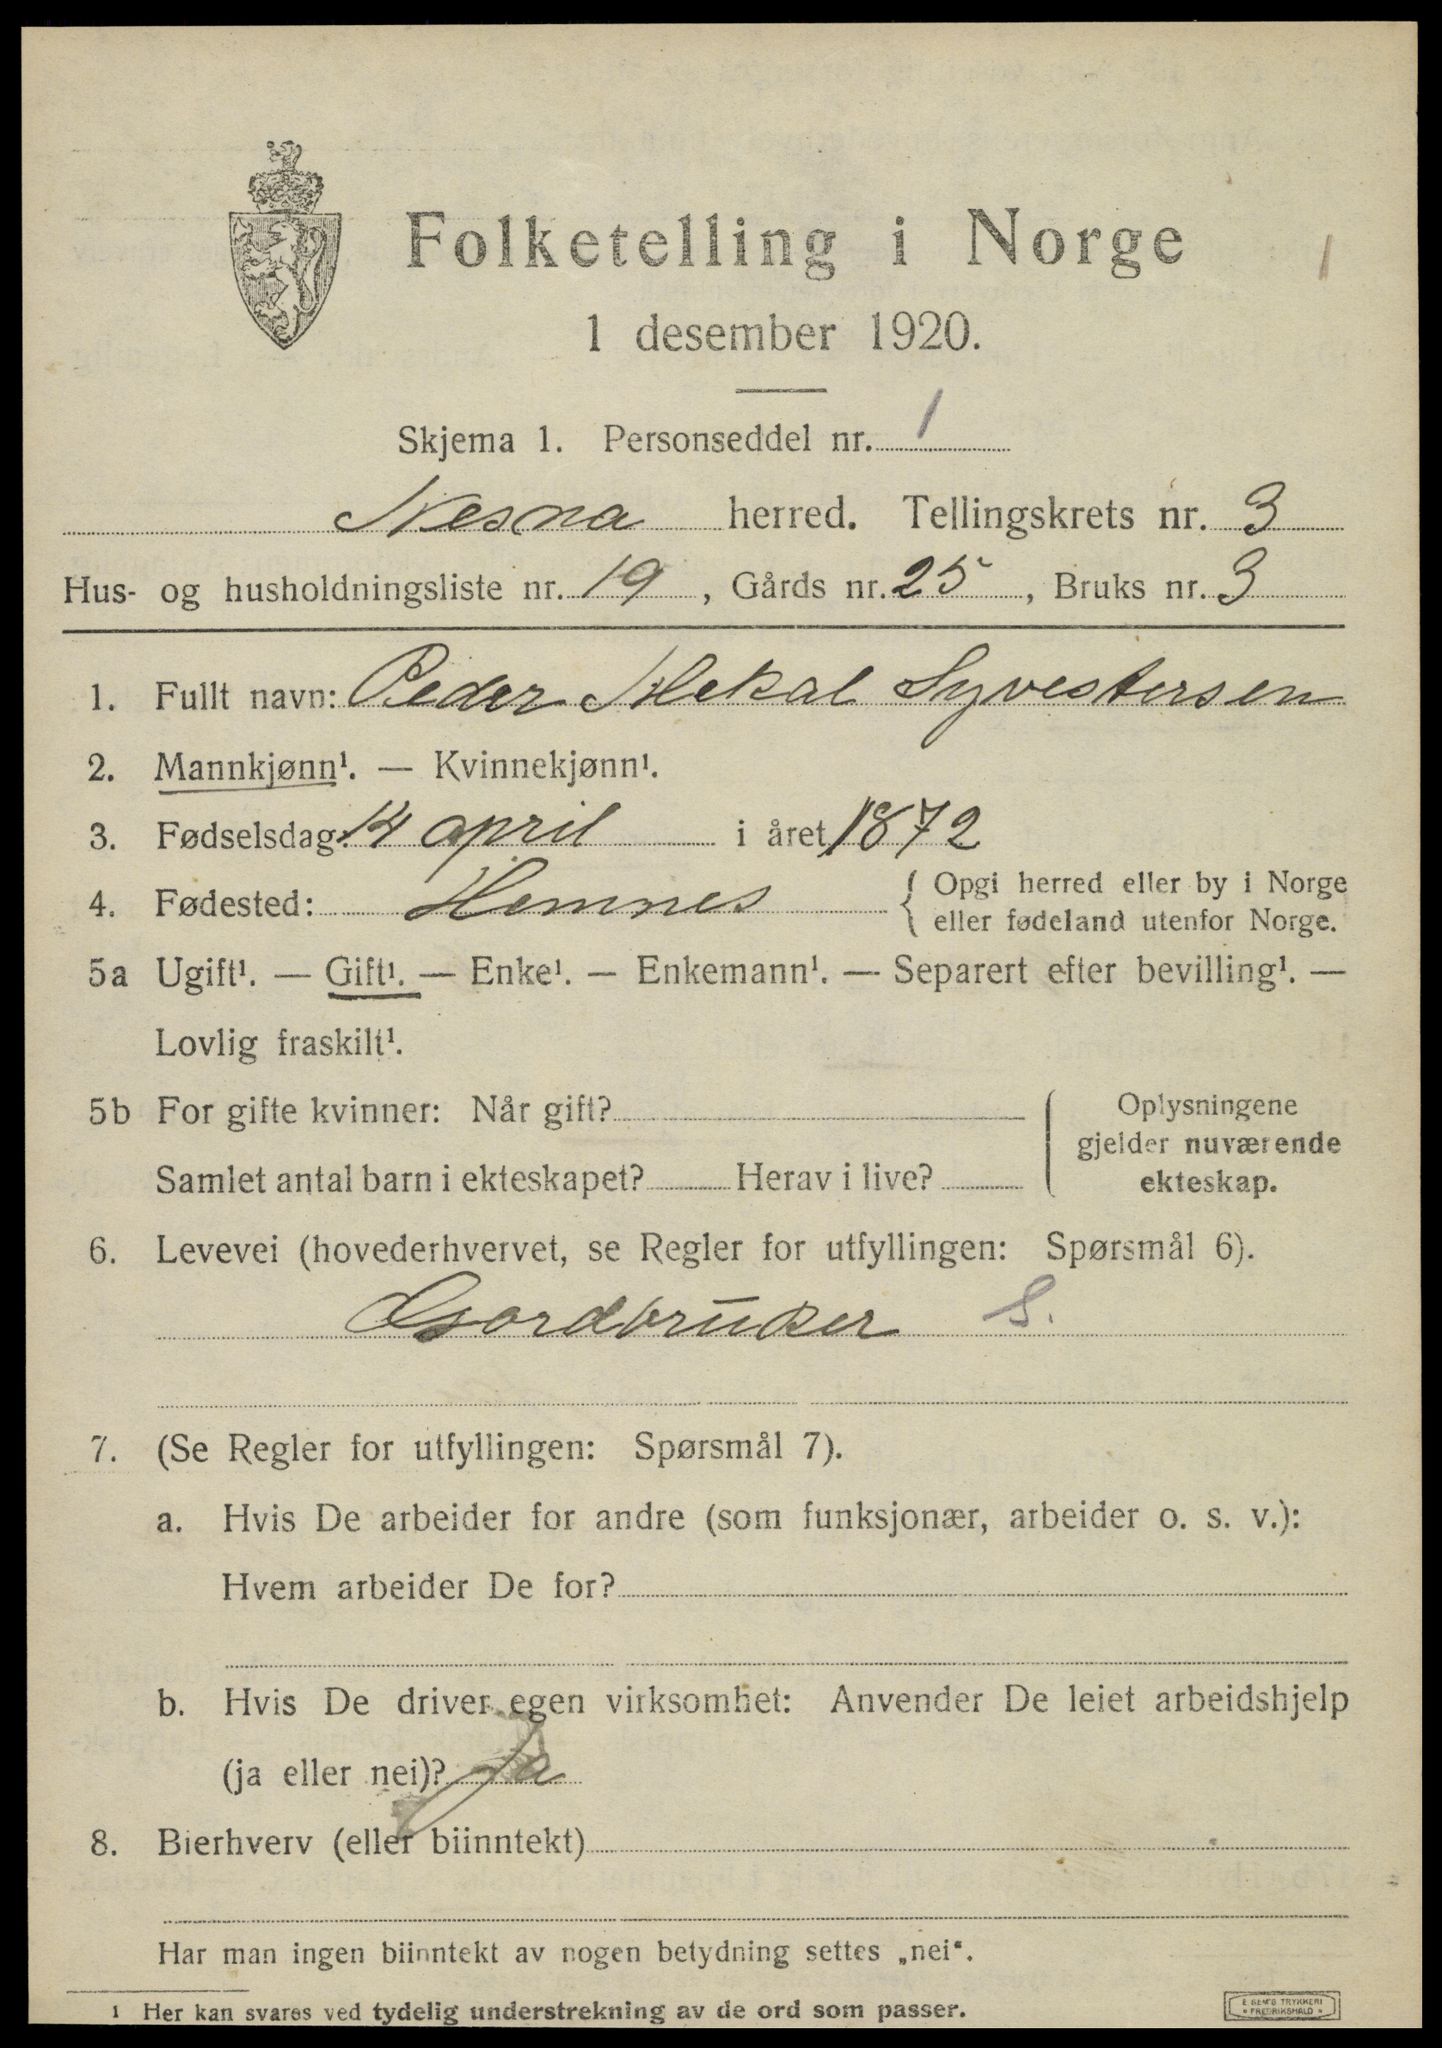 Folketelling i Norge
1
1 desember 1920.
Skjema 1. Personseddel nr. 1
Nesna herred. Tellingskrets nr. 3
Hus- og husholdningsliste nr. 19, Gårds nr. 25, Bruks nr. 3
1. Fullt navn: Peder Mekal Syvestersen
2. Mannkjønn¹. — Kvinnekjønn¹.
3. Fødselsdag: 14 april i året 1872
4. Fødested: Hemnes { Opgi herred eller by i Norge
eller fødeland utenfor Norge.
5a Ugift¹. — Gift¹. — Enke¹. — Enkemann¹. — Separert efter bevilling¹. —
Lovlig fraskilt¹.
5b For gifte kvinner: Når gift?
Samlet antal barn i ekteskapet? Herav i live?
Oplysningene
gjelder nuværende
ekteskap.
6. Levevei (hovederhvervet, se Regler for utfyllingen: Spørsmål 6).
Gordbruker S.
7. (Se Regler for utfyllingen: Spørsmål 7).
a. Hvis De arbeider for andre (som funksjonær, arbeider o. s. v.):
Hvem arbeider De for?
b. Hvis De driver egen virksomhet: Anvender De leiet arbeidshjelp
(ja eller nei)? Ja
8. Bierhverv (eller biinntekt)
Har man ingen biinntekt av nogen betydning settes „nei“.
1 Her kan svares ved tydelig understrekning av de ord som passer.
E SEM'S TRYKKERI
* FREDRIKSHALD *